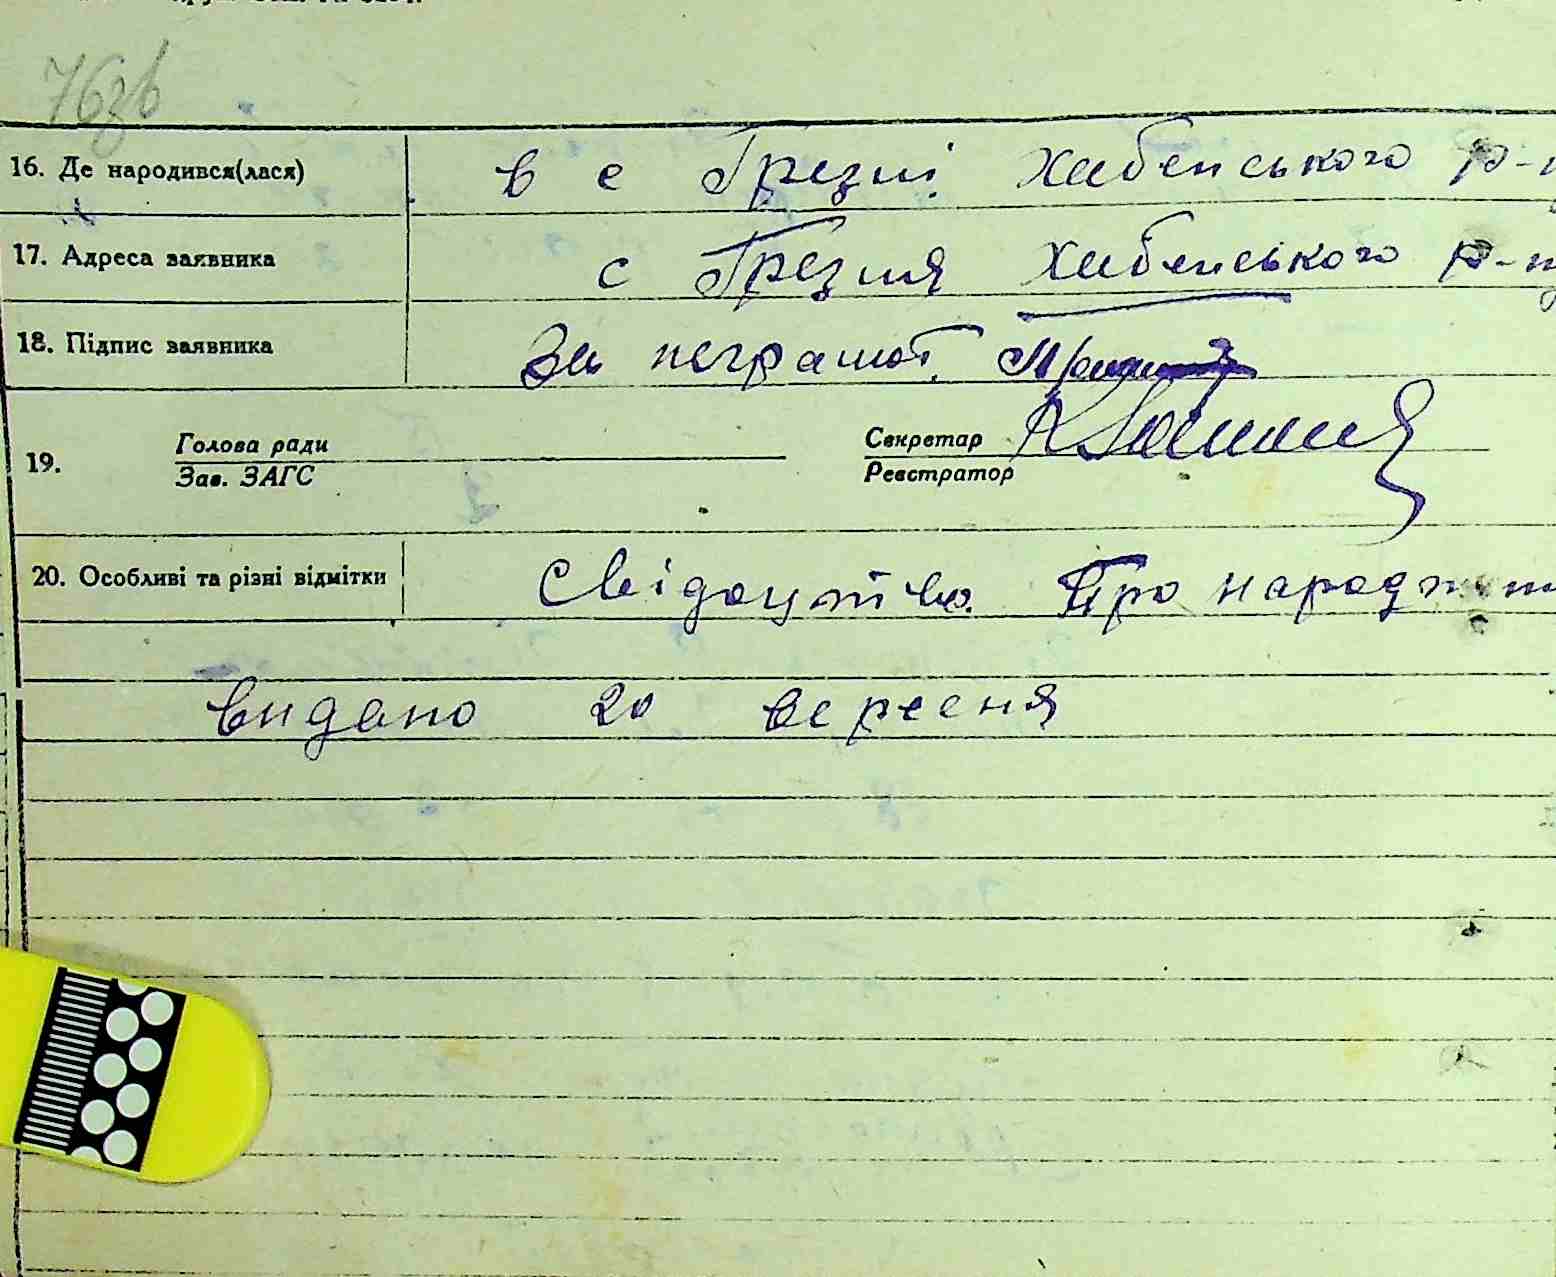 76зв
16. Де народився(лася) в с Грезні Хабенського р-н
17. Адреса заявника с Грезня Хабенського р-н
18. Підпис заявника За неграмот.
Голова ради Секретар
19.
Зав. ЗАГС Реєстратор
20. Особливі та різні відмітки Свідоцтво Про народжен
видано 20 вересня